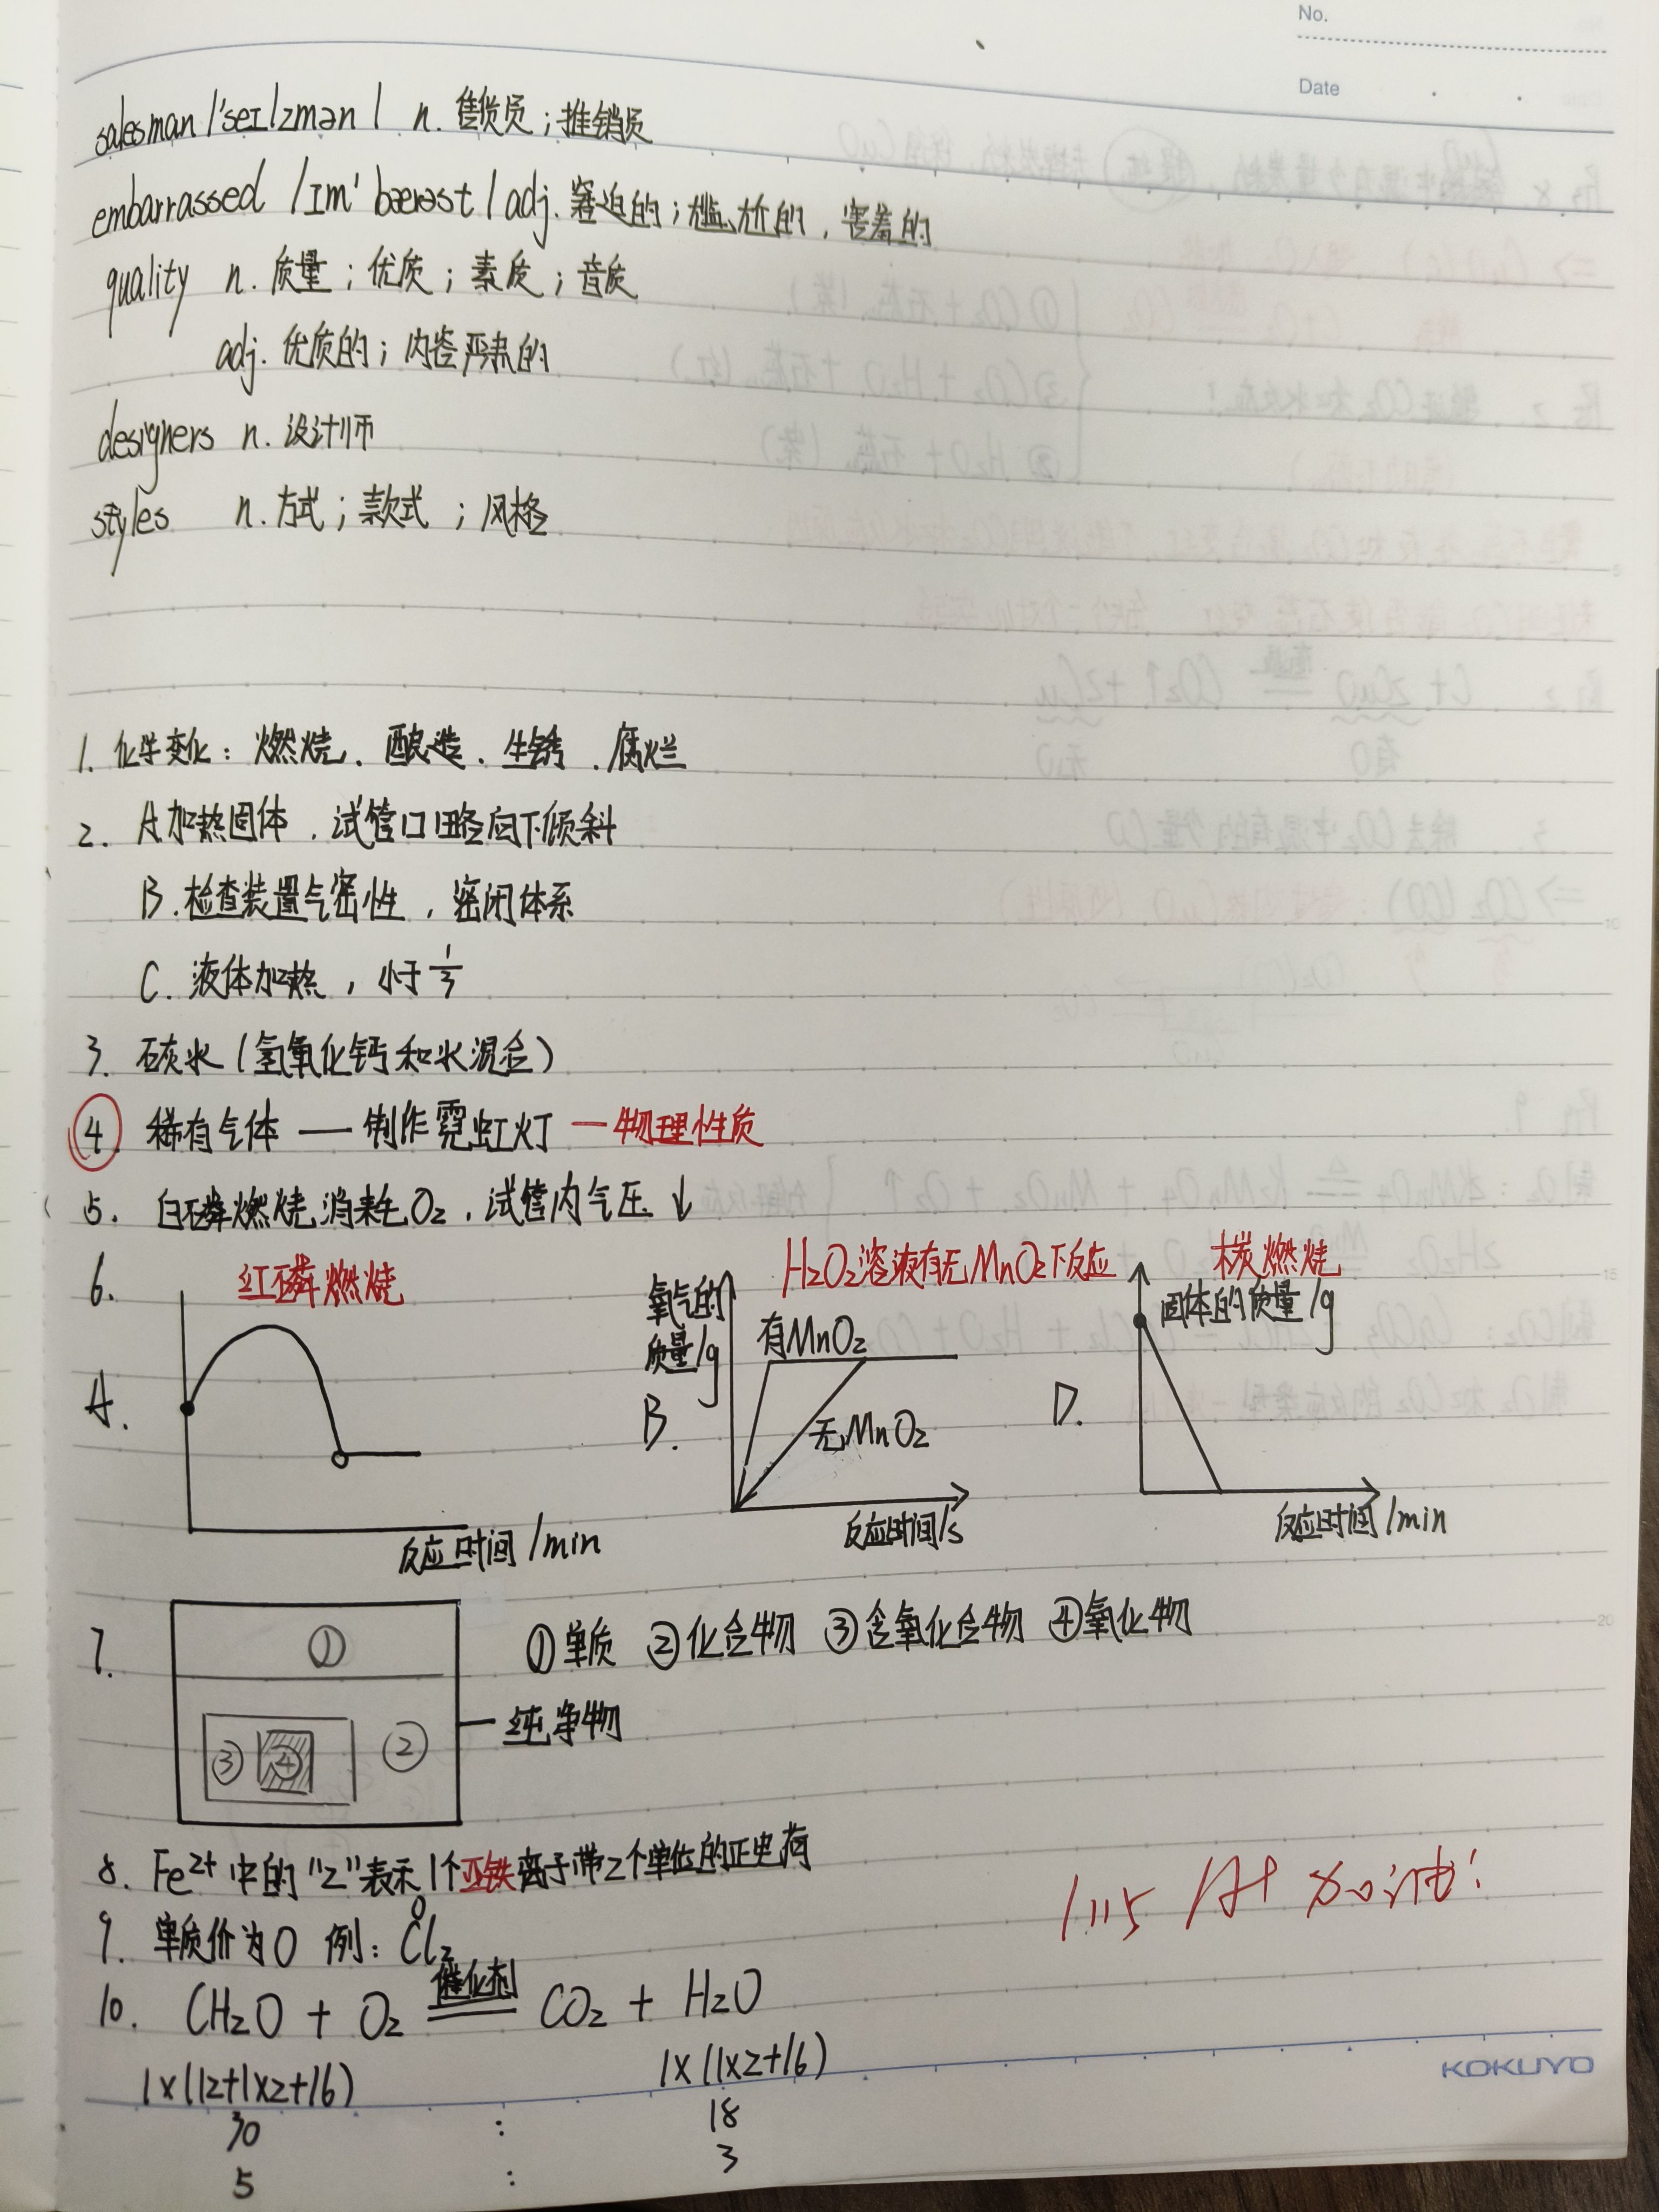 No.
Date
salesman /'seɪlzmən/ n. 售货员；推销员
embarrassed /ɪm'bærəst/ adj. 窘迫的；尴尬的，害羞的
quality n. 质量；优质；素质；音质
adj. 优质的；内容严肃的
designers n. 设计师
styles n. 方式；款式；风格
1. 化学变化：燃烧、酿造、生锈、腐烂
2. A.加热固体，试管口略向下倾斜
B.检查装置气密性，密闭体系
C. 液体加热，小于1/3
3. 石灰水(氢氧化钙和水混合)
④. 稀有气体 — 制作霓虹灯 — 物理性质
5. 白磷燃烧消耗O₂，试管内气压↓
6. 红磷燃烧
A.
反应时间/min
H₂O₂溶液有无MnO₂下反应
氧气的
质量/g
有MnO₂
B.
无MnO₂
反应时间/s
碳燃烧
固体的质量/g
D.
反应时间/min
7. ① ② ③ ④
①单质 ②化合物 ③含氧化合物 ④氧化物
纯净物
8. Fe²⁺中的"2"表示1个亚铁离子带2个单位的正电荷
9. 单质价为0 例：
0
Cl₂
催化剂
10. CH₂O + O₂ ══ CO₂ + H₂O
1×(12+1×2+16) 1×(1×2+16)
30 : 18
5 : 3
1.15 A+ 加油！
KOKUYO